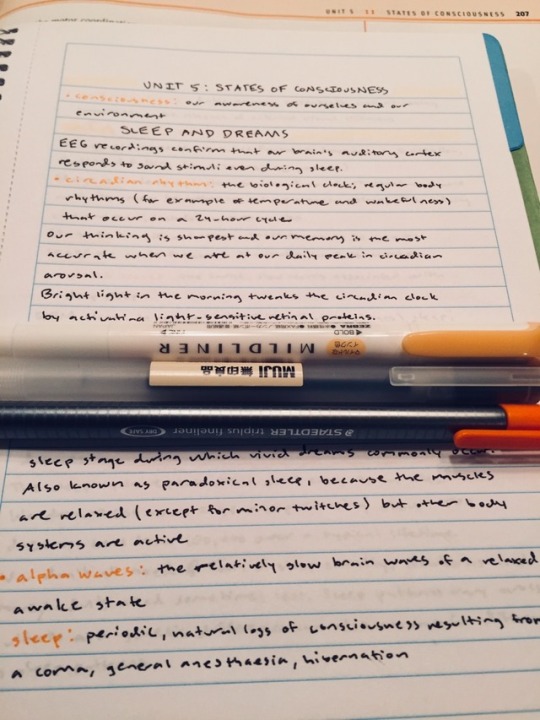 UNIT 5 STATES OF CONSCIOUSNESS 207
UNIT 5: STATES OF CONSCIOUSNESS
• consciousness: our awareness of ourselves and our
environment
SLEEP AND DREAMS
EEG recordings confirm that our brain's auditory cortex
responds to sound stimuli even during sleep.
• circadian rhythm: the biological clock; regular body
rhythms (for example of temperature and wakefulness)
that occur on a 24-hour cycle
Our thinking is sharpest and our memory is the most
accurate when we are at our daily peak in circadian
arousal.
Bright light in the morning tweaks the circadian clock
by activating light-sensitive retinal proteins.
ZEBRA
BOLD
MILDLINER
マイルドな
インク色
MUJI 無印良品
STAEDTLER triplus fineliner DRY SAFE
sleep stage during which vivid dreams commonly occur.
Also known as paradoxical sleep, because the muscles
are relaxed (except for minor twitches) but other body
systems are active
• alpha waves: the relatively slow brain waves of a relaxed,
awake state
• sleep: periodic, natural loss of consciousness resulting from
a coma, general anesthaesia, hibernation